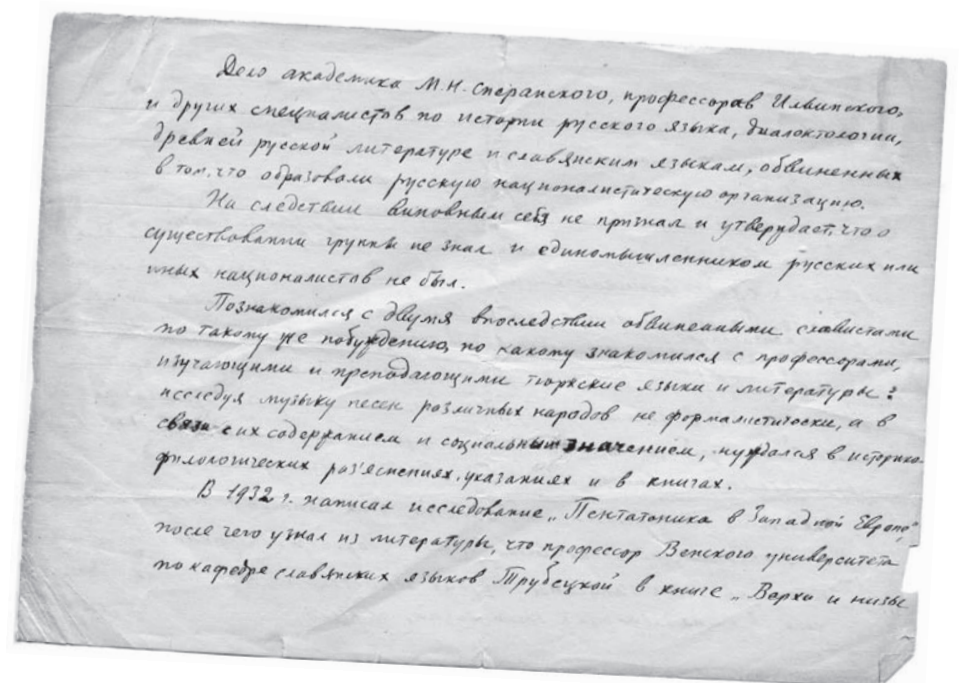 Дело академика М.Н. Сперанского, профессоров Ильинского,
и других специалистов по истории русского языка, диалектологии,
древней русской литературе и славянским языкам, обвиненных
в том, что образовали русскую националистическую организацию.
На следствии виновным себя не признал и утверждает, что о
существовании группы не знал и единомышленником русских или
иных националистов не был.
Познакомился с двумя впоследствии обвиненными славистами
по такому же побуждению, по какому знакомился с профессорами,
изучающими и преподающими тюркские языки и литературы:
исследуя музыку песен различных народов не формалистически, а в
связи с их содержанием и социальным значением, нуждался в историко-
филологических раз'яснениях, указаниях и в книгах.
В 1932 г. написал исследование „Пентатоника в Западной Европе",
после чего узнал из литературы, что профессор Венского университета
по кафедре славянских языков Трубецкой в книге „Верхи и низы